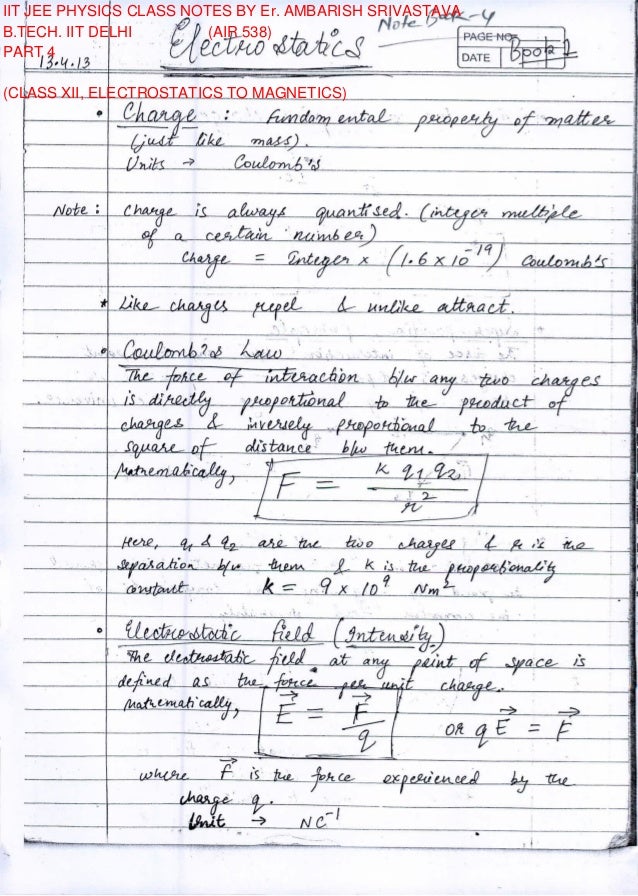 IIT JEE PHYSICS CLASS NOTES BY Er. AMBARISH SRIVASTAVA
B.TECH. IIT DELHI (AIR 538)
PART 4
(CLASS XII, ELECTROSTATICS TO MAGNETICS)
Note Book-4
PAGE NO.
DATE Book 1
13.4.13
Electrostatics
• Charge : Fundamental property of matter
(just like mass).
Units → Coulomb's
Note : Charge is always quantised. (integer multiple
of a certain number)
Charge = Integer × (1.6 × 10⁻¹⁹) Coulomb's
* Like charges repel & unlike attract.
• Coulomb's Law
The force of interaction b/w any two charges
is directly proportional to the product of
charges & inversely proportional to the
square of distance b/w them.
Mathematically, F = k q₁ q₂ / r²
Here, q₁ & q₂ are the two charges & r is the
separation b/w them & k is the proportionality
constant k = 9 × 10⁹ Nm²
• Electrostatic field (Intensity)
The electrostatic field at any point of space is
defined as the force per unit charge.
Mathematically, E⃗ = F⃗ / q OR q E⃗ = F⃗
where F⃗ is the force experienced by the
charge q.
Unit → NC⁻¹